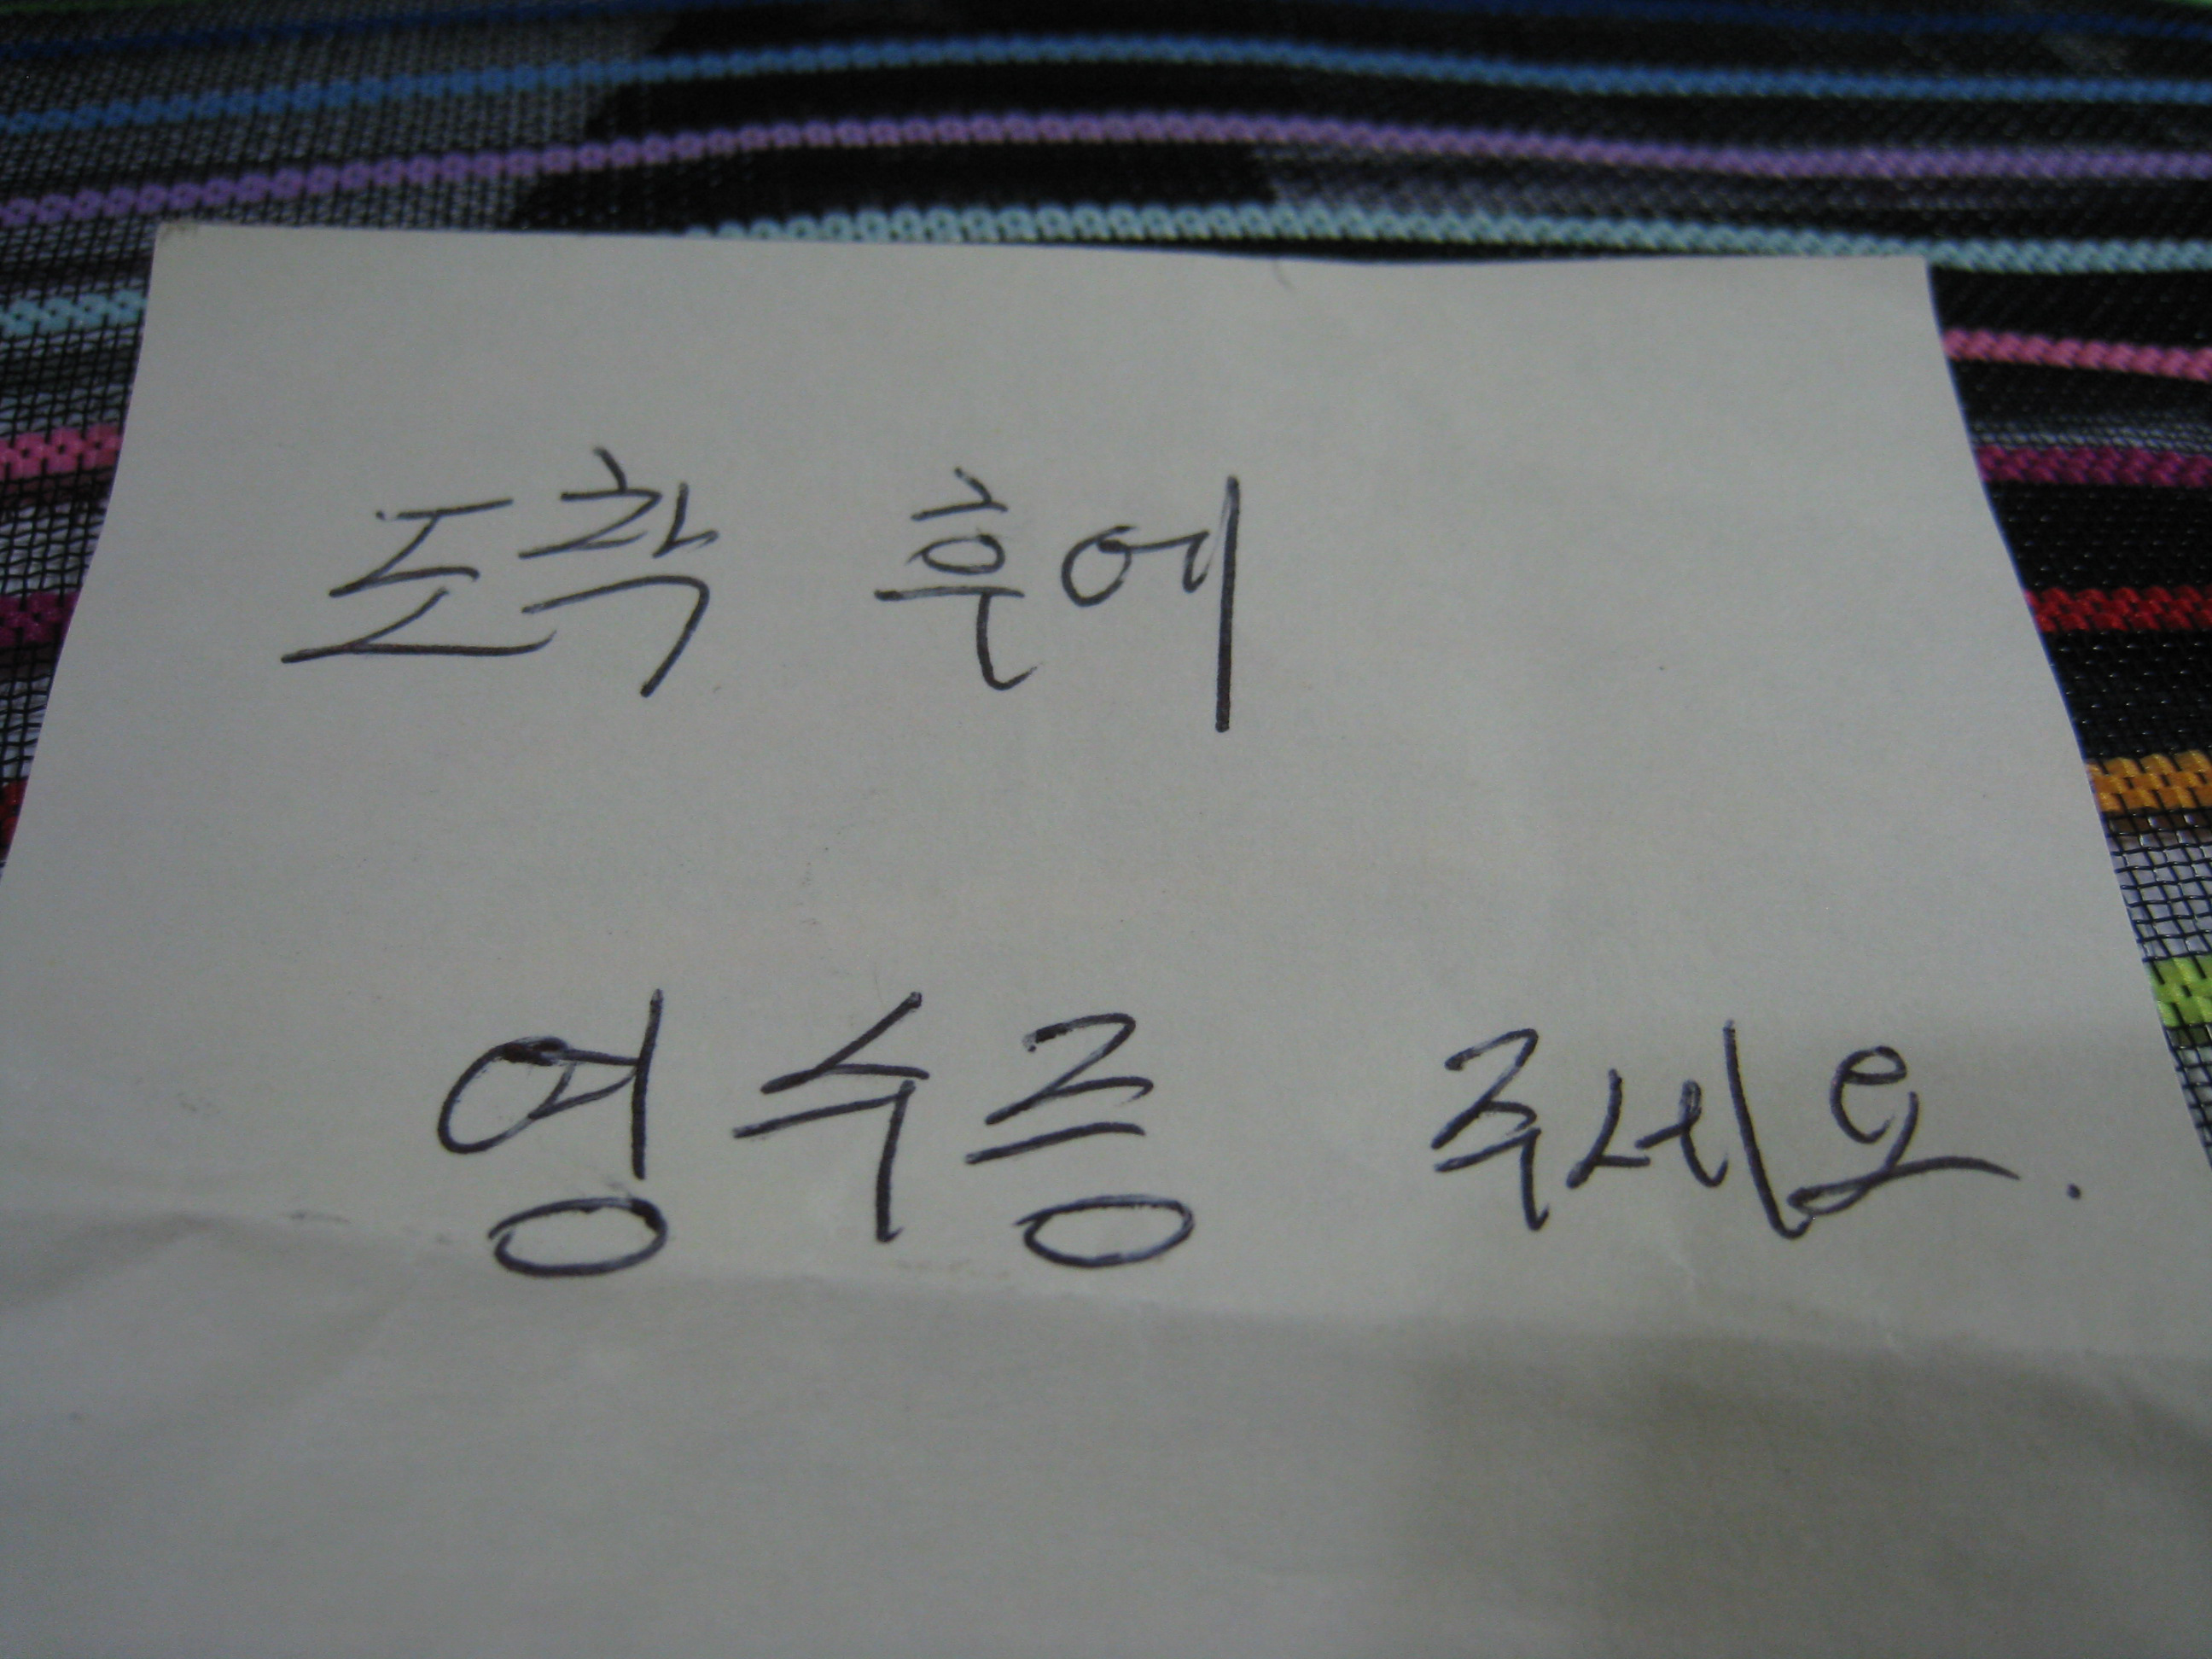 도착 후에
영수증 주세요.